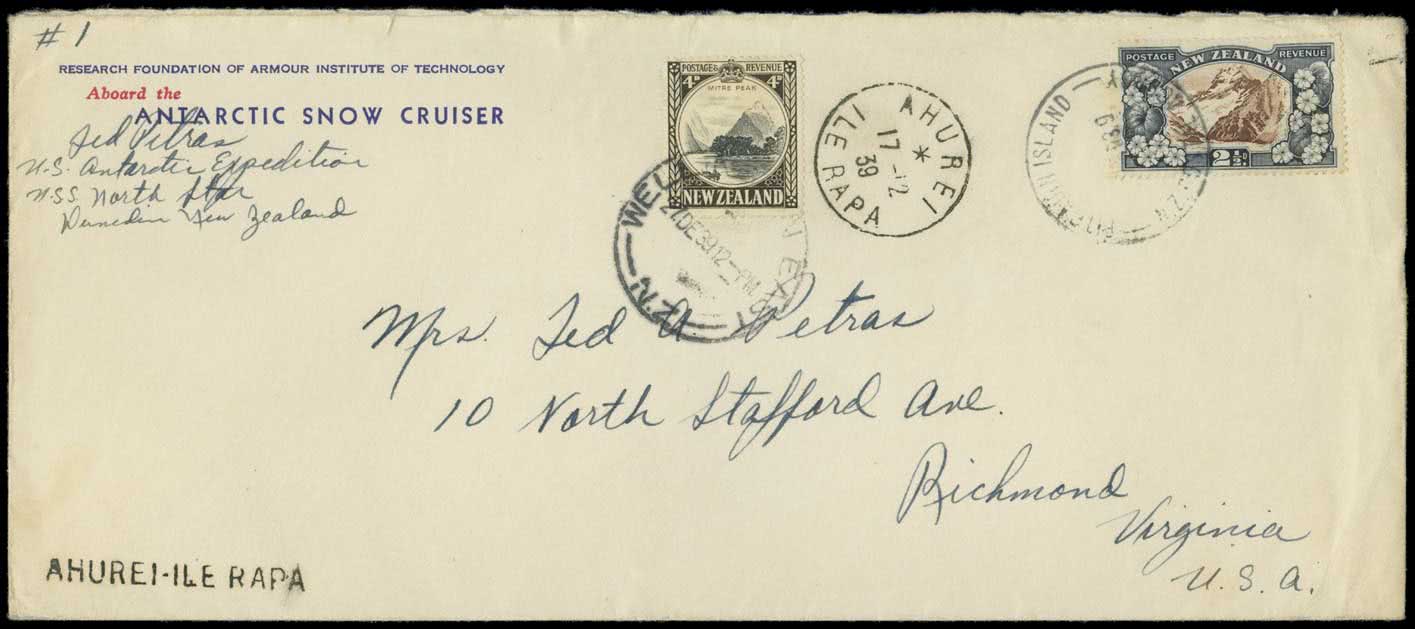 # 1
RESEARCH FOUNDATION OF ARMOUR INSTITUTE OF TECHNOLOGY
Aboard the
ANTARCTIC SNOW CRUISER
Ted Petras
U.S. Antarctic Expedition
USS North Star
Dunedin New Zealand
POSTAGE & REVENUE
4D
MITRE PEAK
NEW ZEALAND
AHUREI
17-12
39
ILE RAPA
POSTAGE NEW ZEALAND REVENUE
2½D
N.Z. POST
PITCAIRN ISLAND
39
WELLINGTON EAST
27DE39 12-PM
N.Z.
Mrs. Ted A Petras
10 North Stafford Ave.
Richmond
Virginia
U. S. A.
AHUREI-ILE RAPA